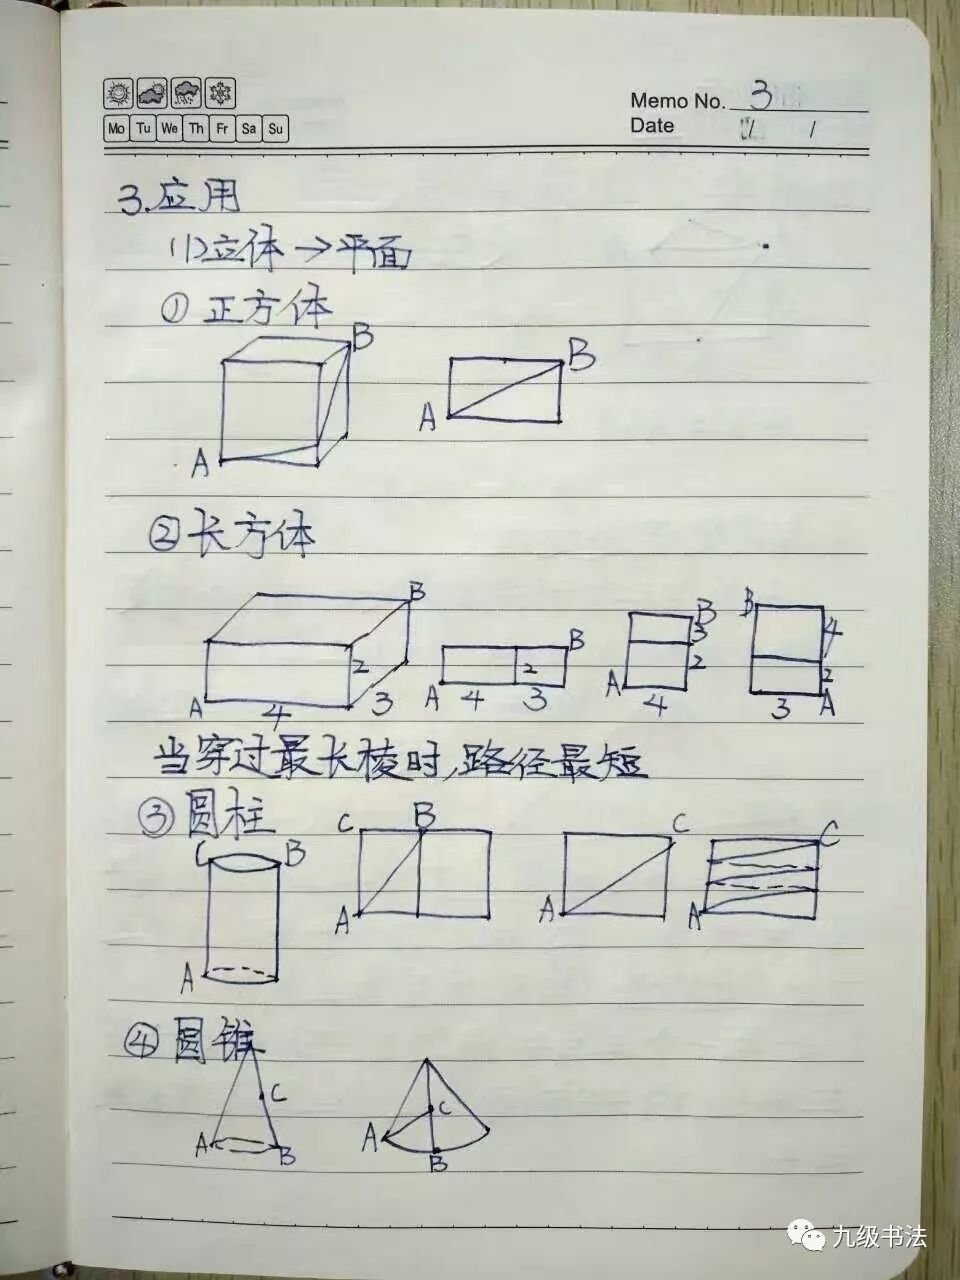 Memo No. 3
Mo Tu We Th Fr Sa Su
Date / /
3.应用
(1)立体→平面
①正方体
B
A
B
A
②长方体
B
A
4
2
3
B
A
2
4
3
B
3
2
A
4
B
4
2
3
A
当穿过最长棱时,路径最短
③圆柱
C
B
A
C
B
A
C
A
C
A
④圆锥
C
A
B
C
A
B
九级书法